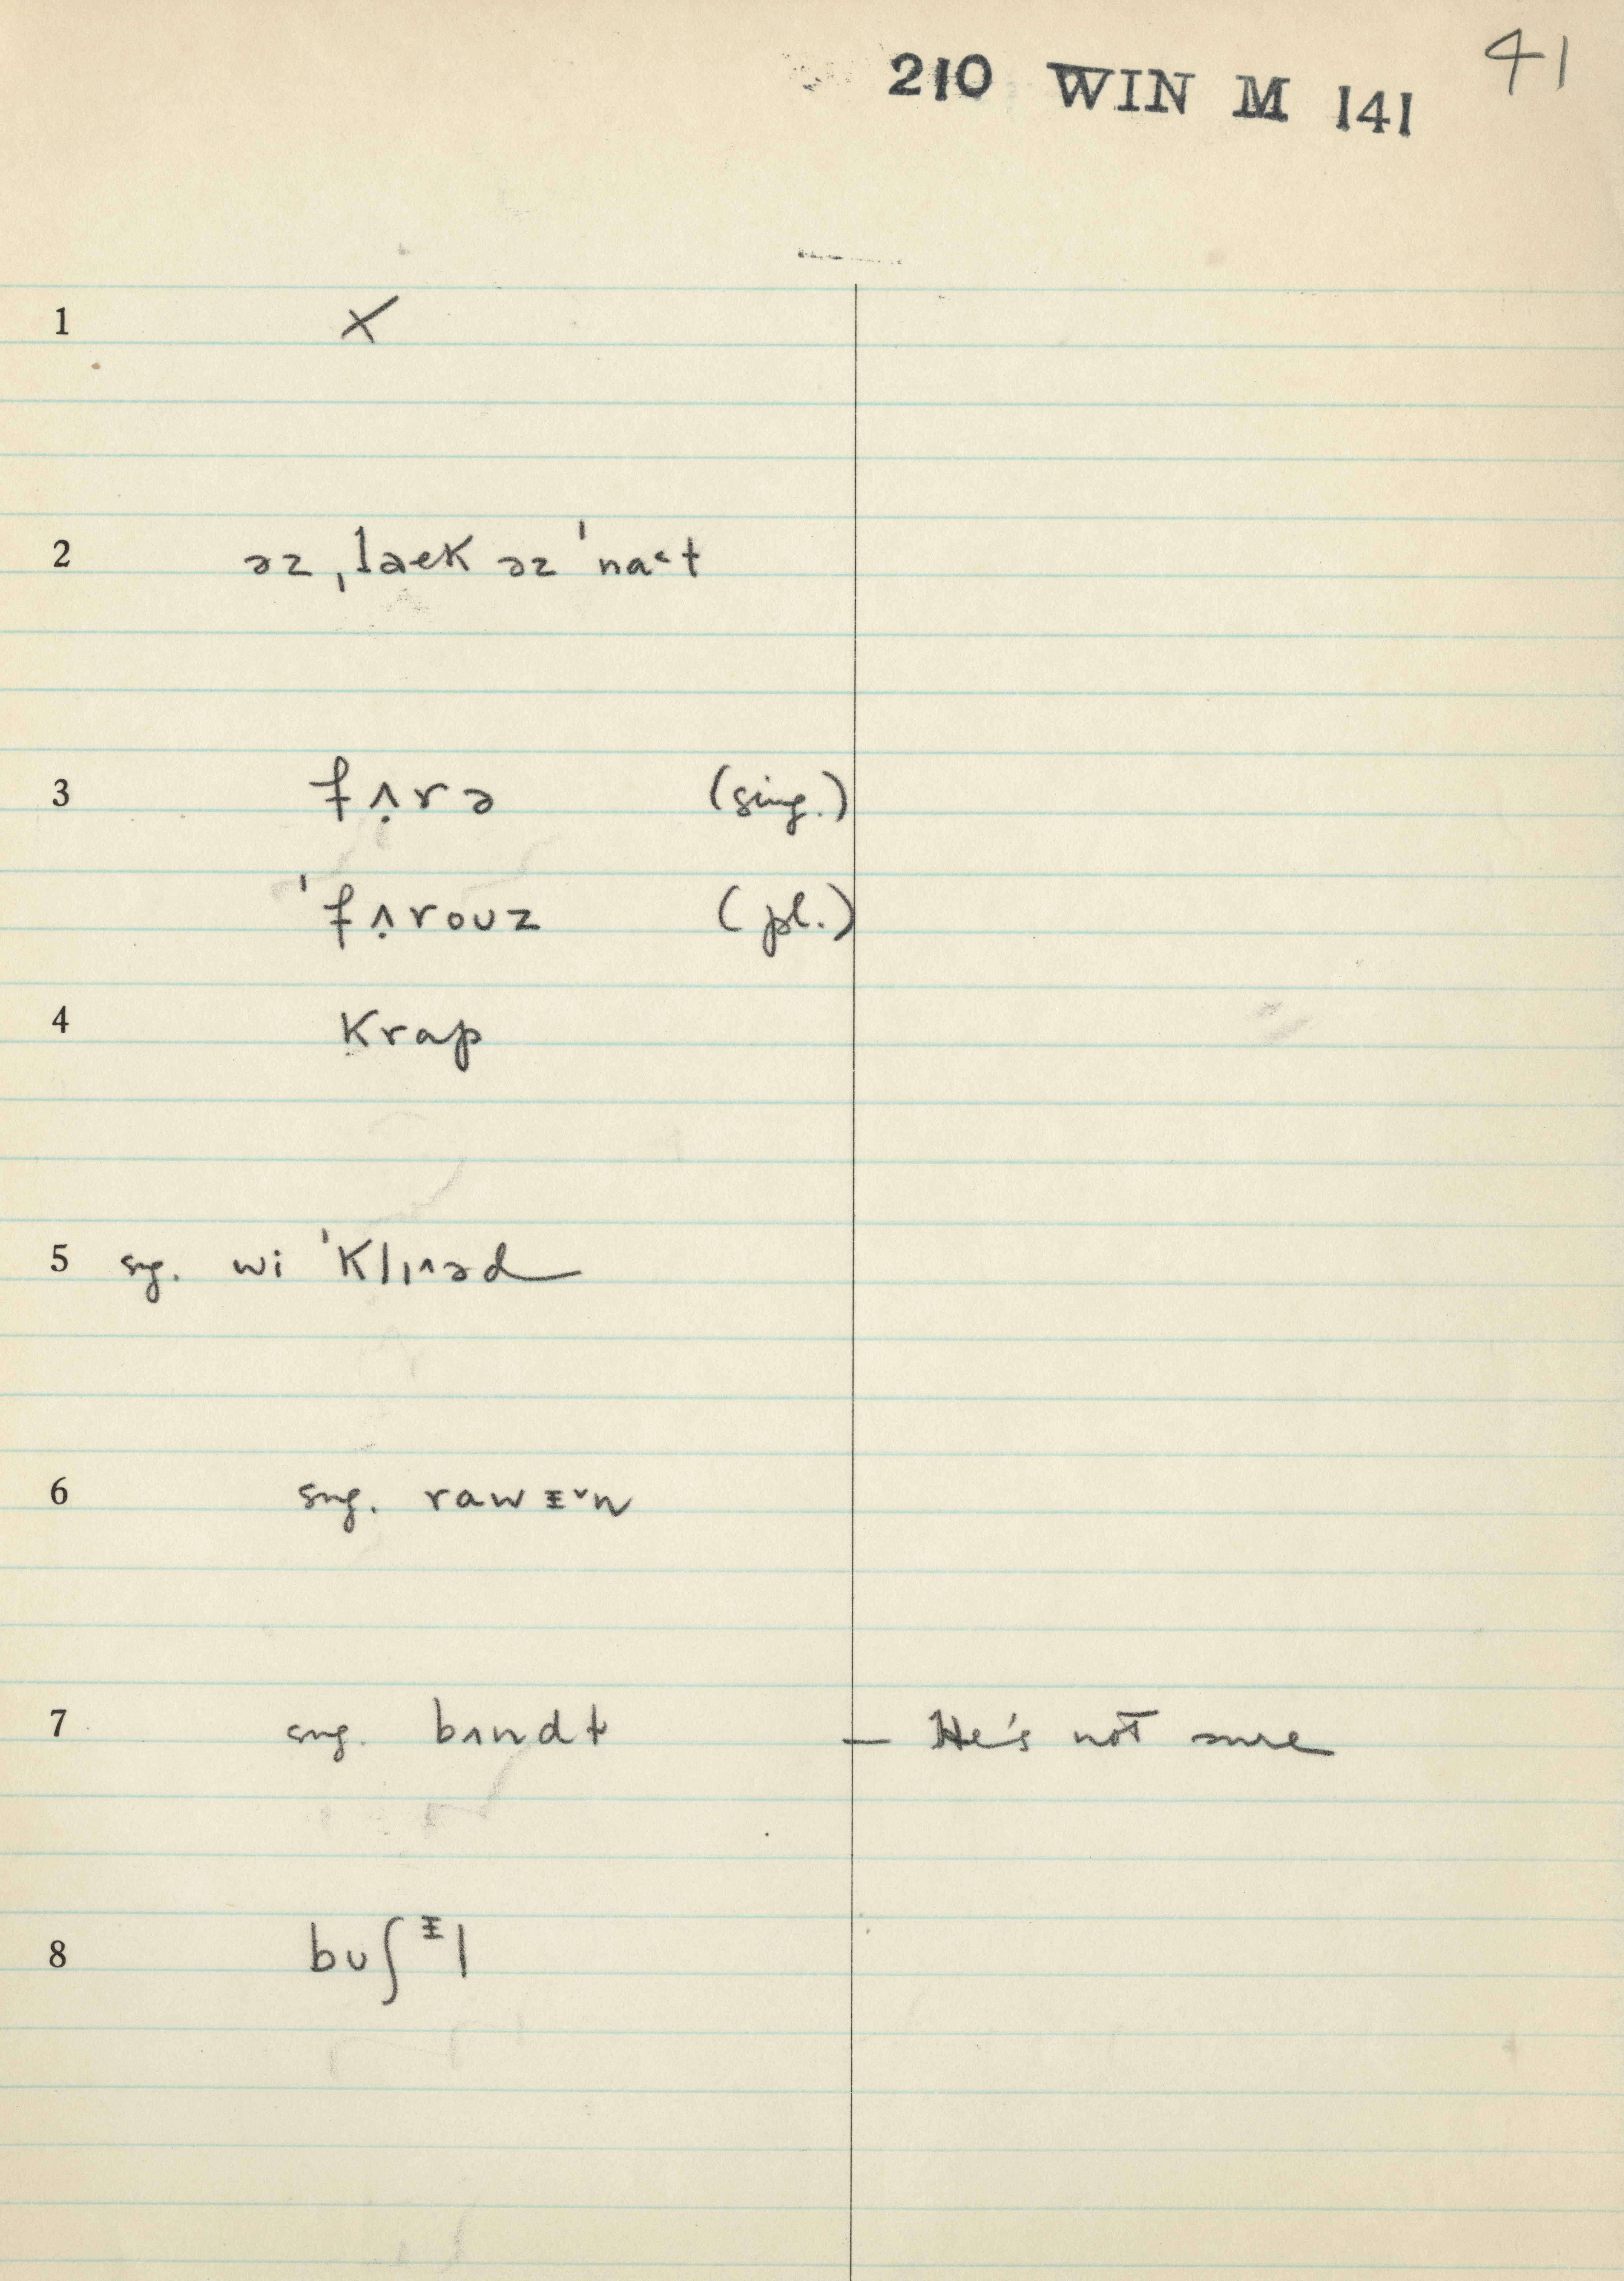 210 WIN M 141 41
1 X
2 əz ˌlaek əz ˈna˂t
3 fʌ̣rə (sing.)
ˈfʌ̣rouz (pl.)
4 Krap
5 sug. wi ˈKlɪ˄əd
6 sug. rawᵻ˅n
7 sug. bʌndt — He's not sure
8 buʃᵻl